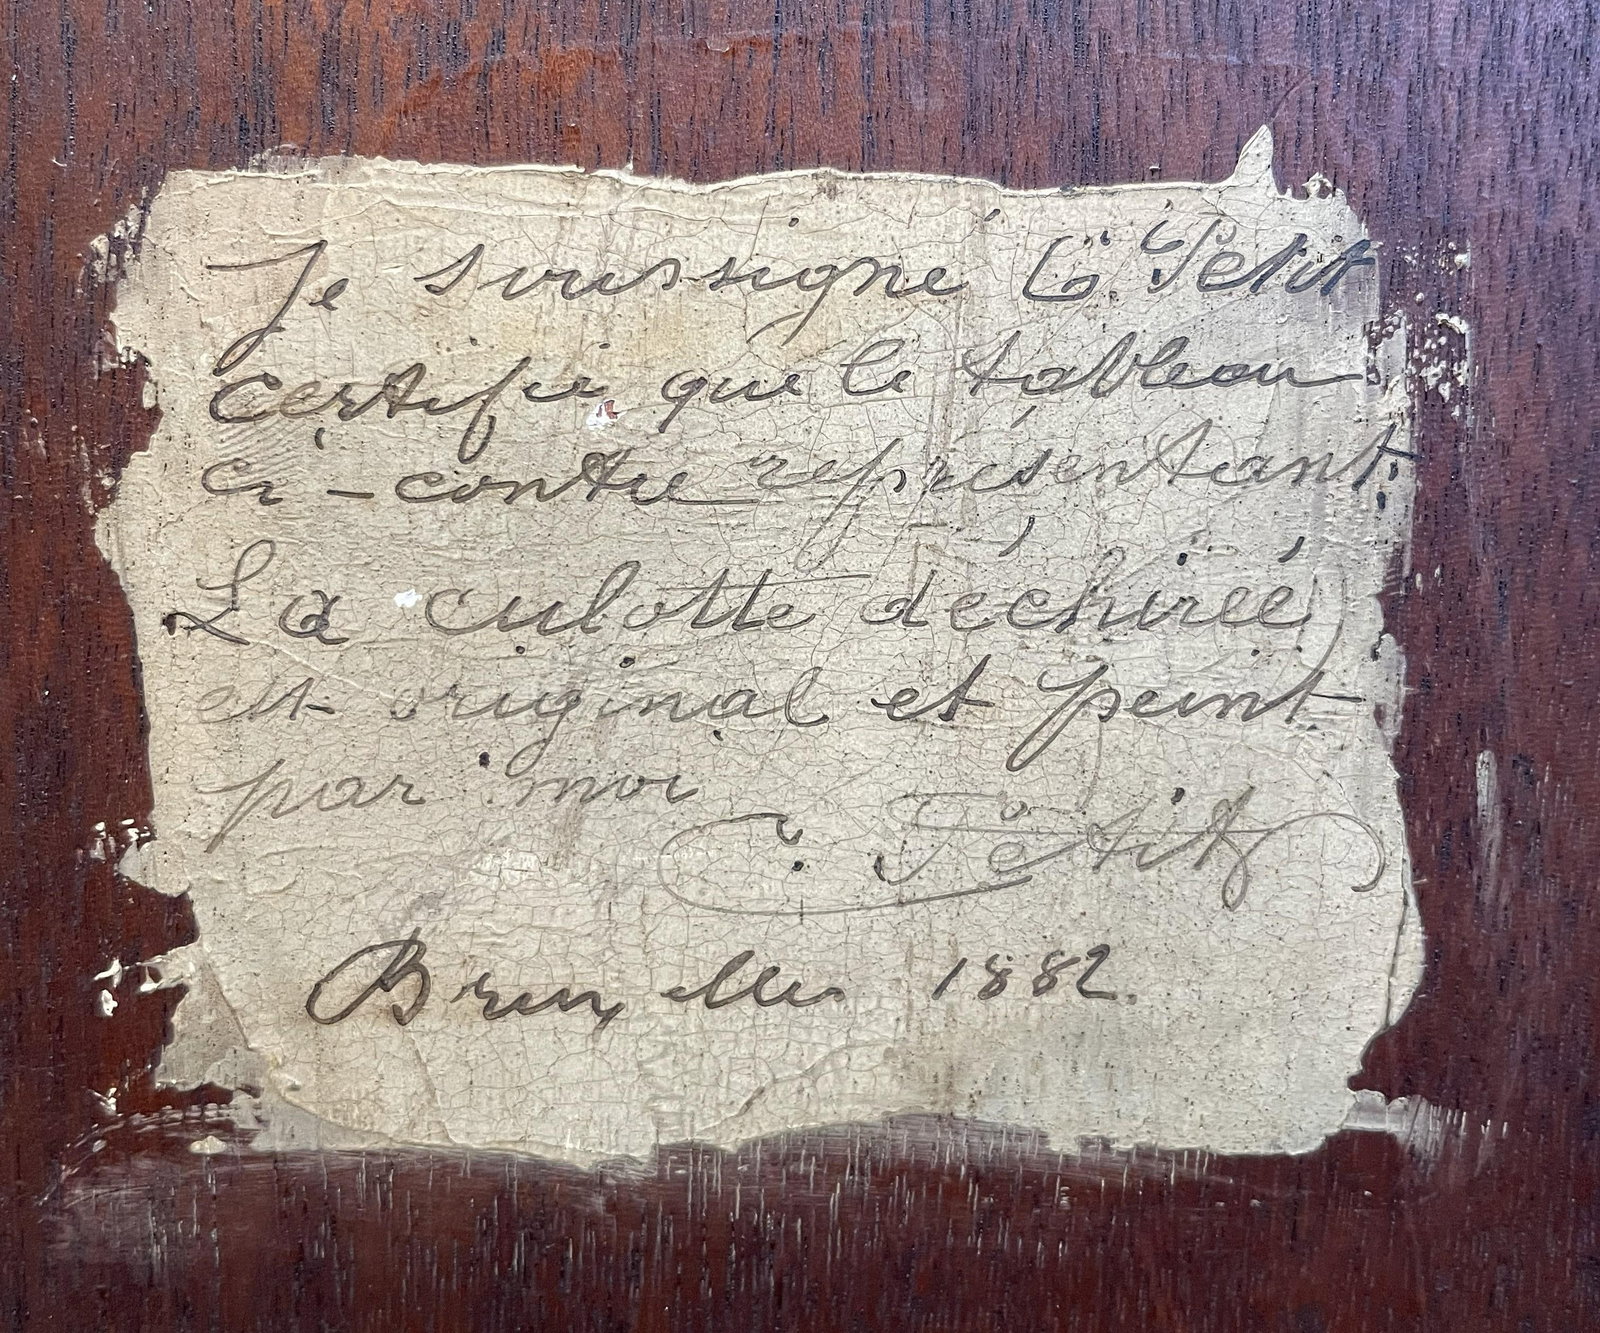 Je soussigné C. Petit
certifie que le tableau
ci-contre représentant:
La culotte déchirée
est original et peint
par moi
C. Petit
Bruxelles 1882.